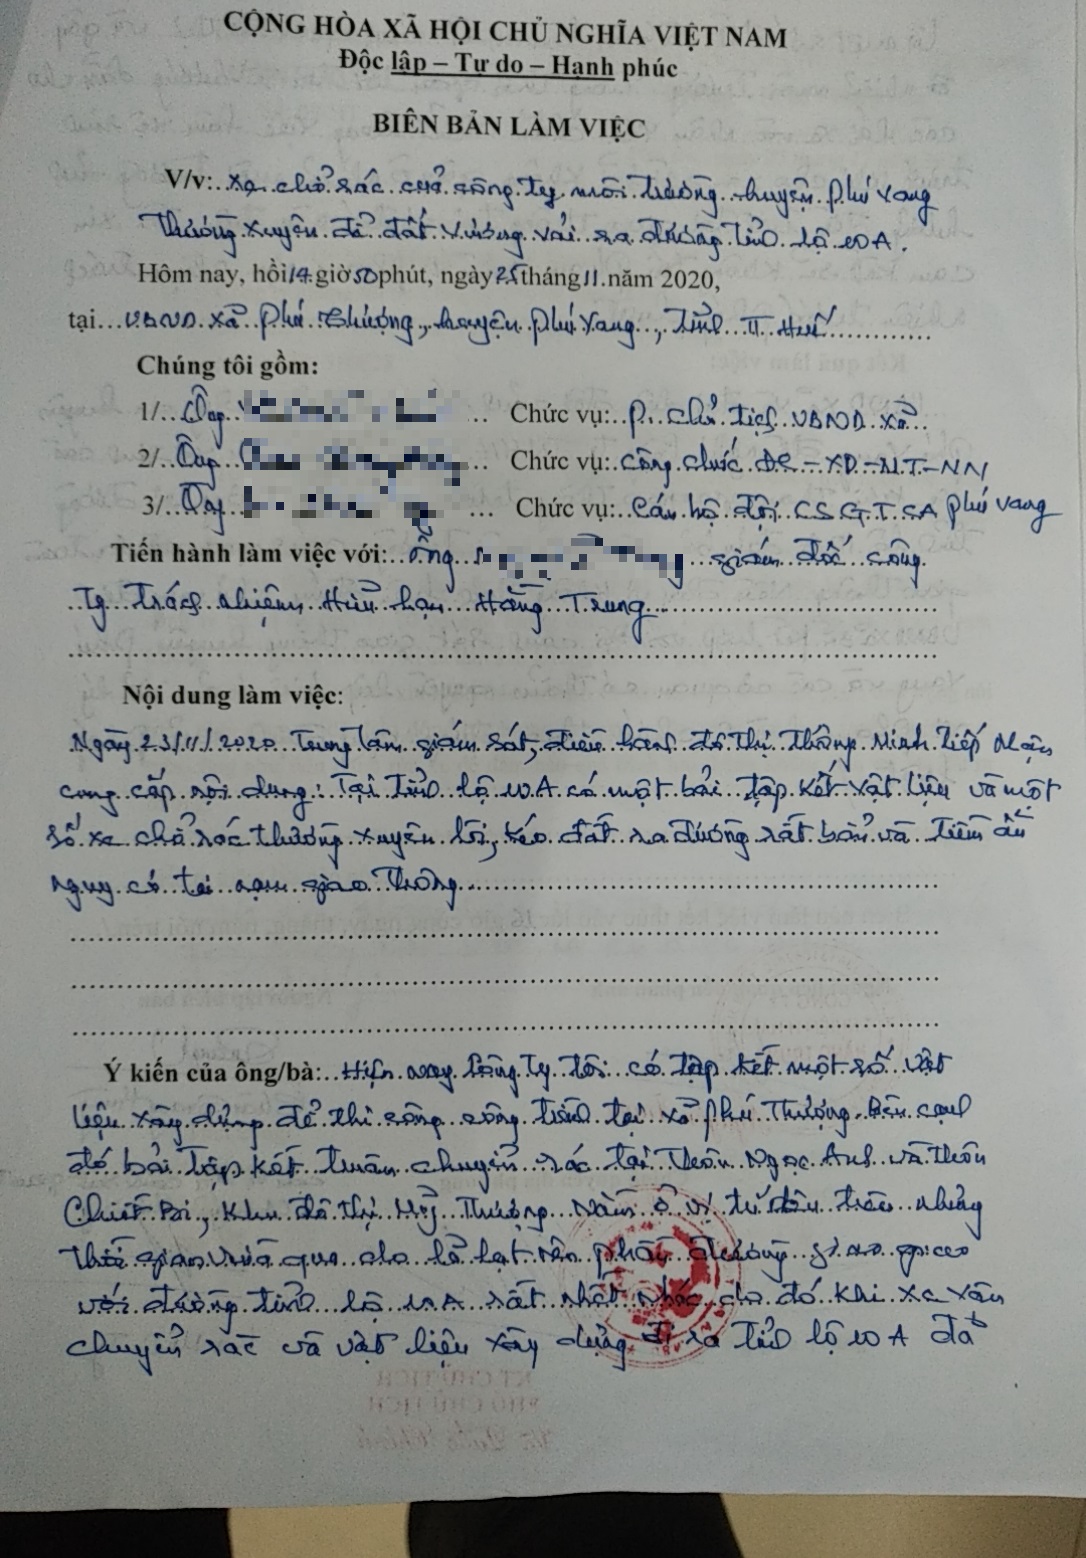 CỘNG HÒA XÃ HỘI CHỦ NGHĨA VIỆT NAM
Độc lập – Tự do – Hạnh phúc
BIÊN BẢN LÀM VIỆC
V/v: Xe chở rác của công ty môi trường huyện Phú Vang
thường xuyên để đất vương vải ra đường tỉnh lộ 10A.
Hôm nay, hồi 14 giờ 50 phút, ngày 25 tháng 11 năm 2020,
tại UBND xã Phú Thượng, huyện Phú Vang, Tỉnh TT Huế
Chúng tôi gồm:
1/ Ông Chức vụ: P. chủ tịch UBND xã
2/ Ông Chức vụ: Công chức ĐC-XD-MT-NN
3/ Ông Chức vụ: Cán bộ đội CSGT CA Phú Vang
Tiến hành làm việc với: Ông giám đốc công
Ty trách nhiệm Hữu hạn Hằng Trung
Nội dung làm việc:
Ngày 23/11/2020 Trung tâm giám sát, điều hành đô thị thông minh tiếp nhận
cung cấp nội dung: Tại Tỉnh lộ 10A có một bải tập kết vật liệu và một
số xe chở rác thường xuyên lôi, kéo đất ra đường rất bẩn và tiềm ẩn
nguy cơ tai nạn giao thông
Ý kiến của ông/bà: Hiện nay Công Ty tôi có tập kết một số vật
liệu xây dựng để thi công công trình tại xã Phú Thượng. Bên cạnh
đó bải tập kết trung chuyển rác tại Thôn Ngọc Anh và thôn
Chiết Bi, Khu đô thị Mỹ Thượng nằm ở vị trí trên những
thời gian vừa qua do lũ lụt nên phần đường giao
với đường tỉnh lộ 10A rất do đó khi xe vận
chuyển rác và vật liệu xây dựng đi ra tỉnh lộ 10A đã